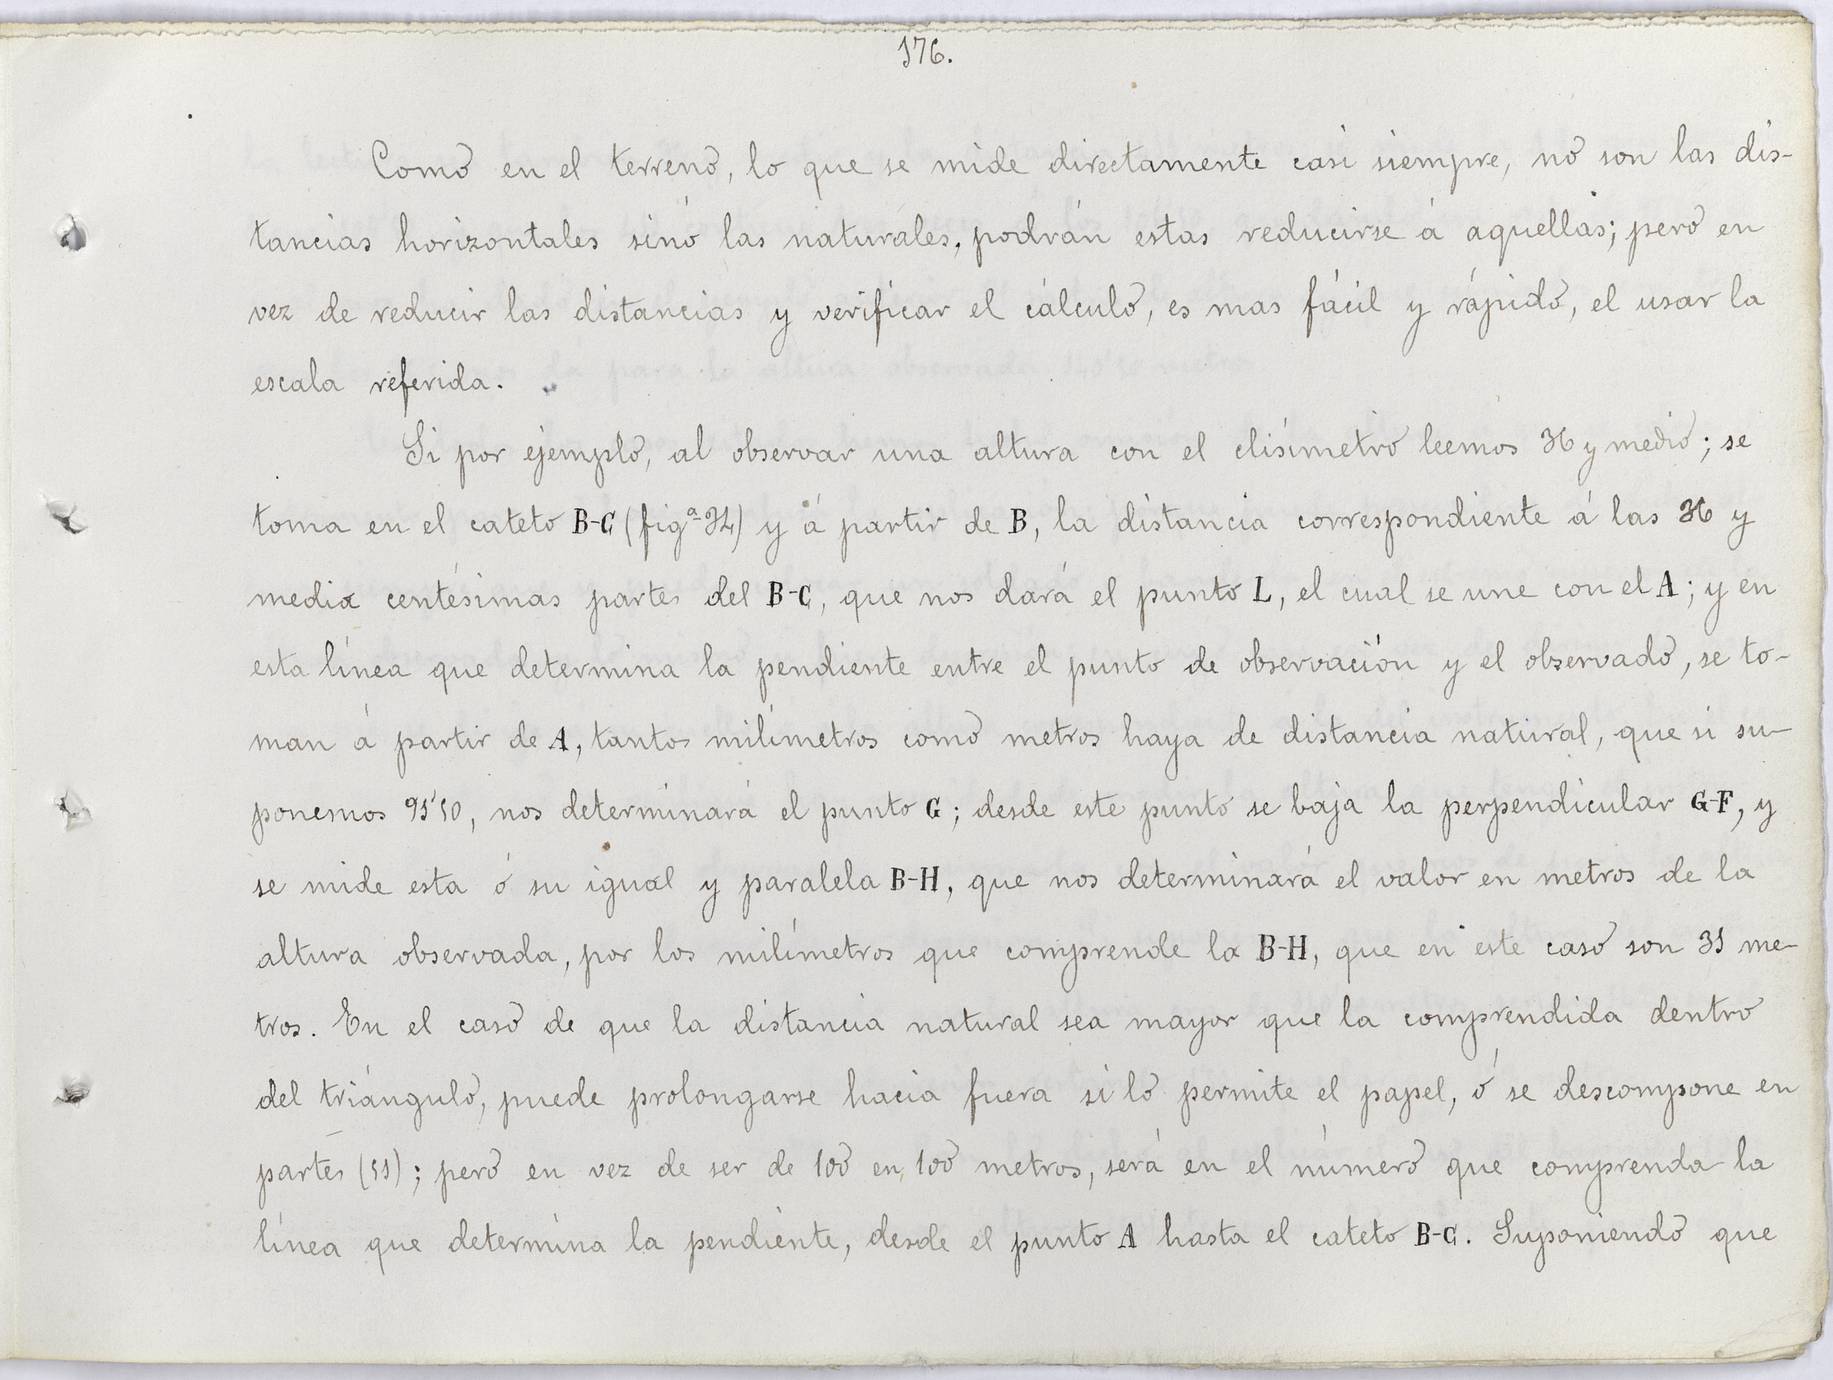 176.
Como en el terreno, lo que se mide directamente casi siempre, no son las dis-
tancias horizontales sinó las naturales, podrán estas reducirse á aquellas; pero en
vez de reducir las distancias y verificar el cálculo, es mas fácil y rápido, el usar la
escala referida.
Si por ejemplo, al observar una altura con el clisímetro leemos 36 y medio; se
toma en el cateto B-C (figª 34) y á partir de B, la distancia correspondiente á las 36 y
media centésimas partes del B-C, que nos dará el punto L, el cual se une con el A; y en
esta línea que determina la pendiente entre el punto de observación y el observado, se to-
man á partir de A, tantos milímetros como metros haya de distancia natural, que si su-
ponemos 91'50, nos determinará el punto G; desde este punto se baja la perpendicular G-F, y
se mide esta ó su igual y paralela B-H, que nos determinará el valor en metros de la
altura observada, por los milímetros que comprende la B-H, que en este caso son 31 me-
tros. En el caso de que la distancia natural sea mayor que la comprendida dentro
del triángulo, puede prolongarse hacia fuera si lo permite el papel, ó se descompone en
partes (51); pero en vez de ser de 100 en 100 metros, será en el número que comprenda la
línea que determina la pendiente, desde el punto A hasta el cateto B-C. Suponiendo que